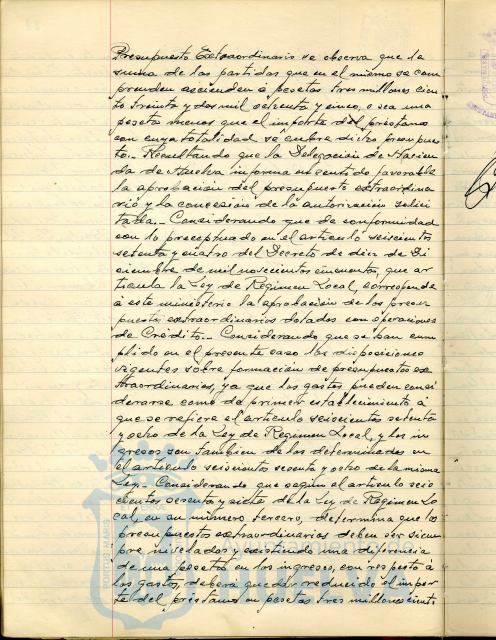 Presupuesto Extraordinario se observa que la
suma de las partidas que en el mismo se com
prenden ascienden á pesetas tres millones cien
to treinta y dos mil setenta y cinco, o sea una
peseta menos que el importe del préstamo
con cuya totalidad se cubre dicho presupues
to.- Resultando que la Delegación de Hacien
da de Huelva informa en sentido favorable
la aprobación del presupuesto extraordina
rio y la concesión de la autorización solici
tada.- Considerando que de conformidad
con lo preceptuado en el artículo seiscientos
setenta y cuatro del Decreto de diez de Di
ciembre de mil novecientos cincuenta, que ar
ticula la Ley de Régimen Local, corresponde
á este ministerio la aprobación de los presu
puestos extraordinarios dotados con operaciones
de Crédito.- Considerando que se han cum
plido en el presente caso las disposiciones
vigentes sobre formación de presupuestos ex
traordinarios, ya que los gastos pueden consi
derarse como de primer establecimiento á
que se refiere el artículo seiscientos setenta
y ocho de la Ley de Régimen Local, y los in
gresos son tambien de los determinados en
el artículo seiscientos sesenta y ocho de la misma
Ley.- Considerando que según el artículo seis
cientos sesenta y siete de la Ley de Régimen Lo
cal, en su número tercero, determina que los
presupuestos extraordinarios deben ser siem
pre, nivelados y existiendo una diferencia
de una peseta en los ingresos, con respecto á
los gastos, deberá quedar reducido el impor
te del préstamo en pesetas tres millones cient
Ayuntamiento de